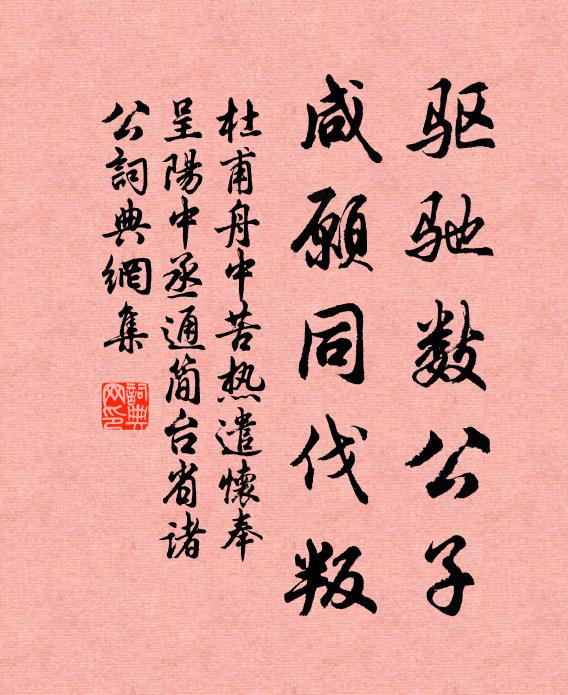 驱驰数公子
咸願同伐叛
杜甫舟中苦热遣懷奉
呈陽中丞通简台省诸
公詞典網集
詞典
网印